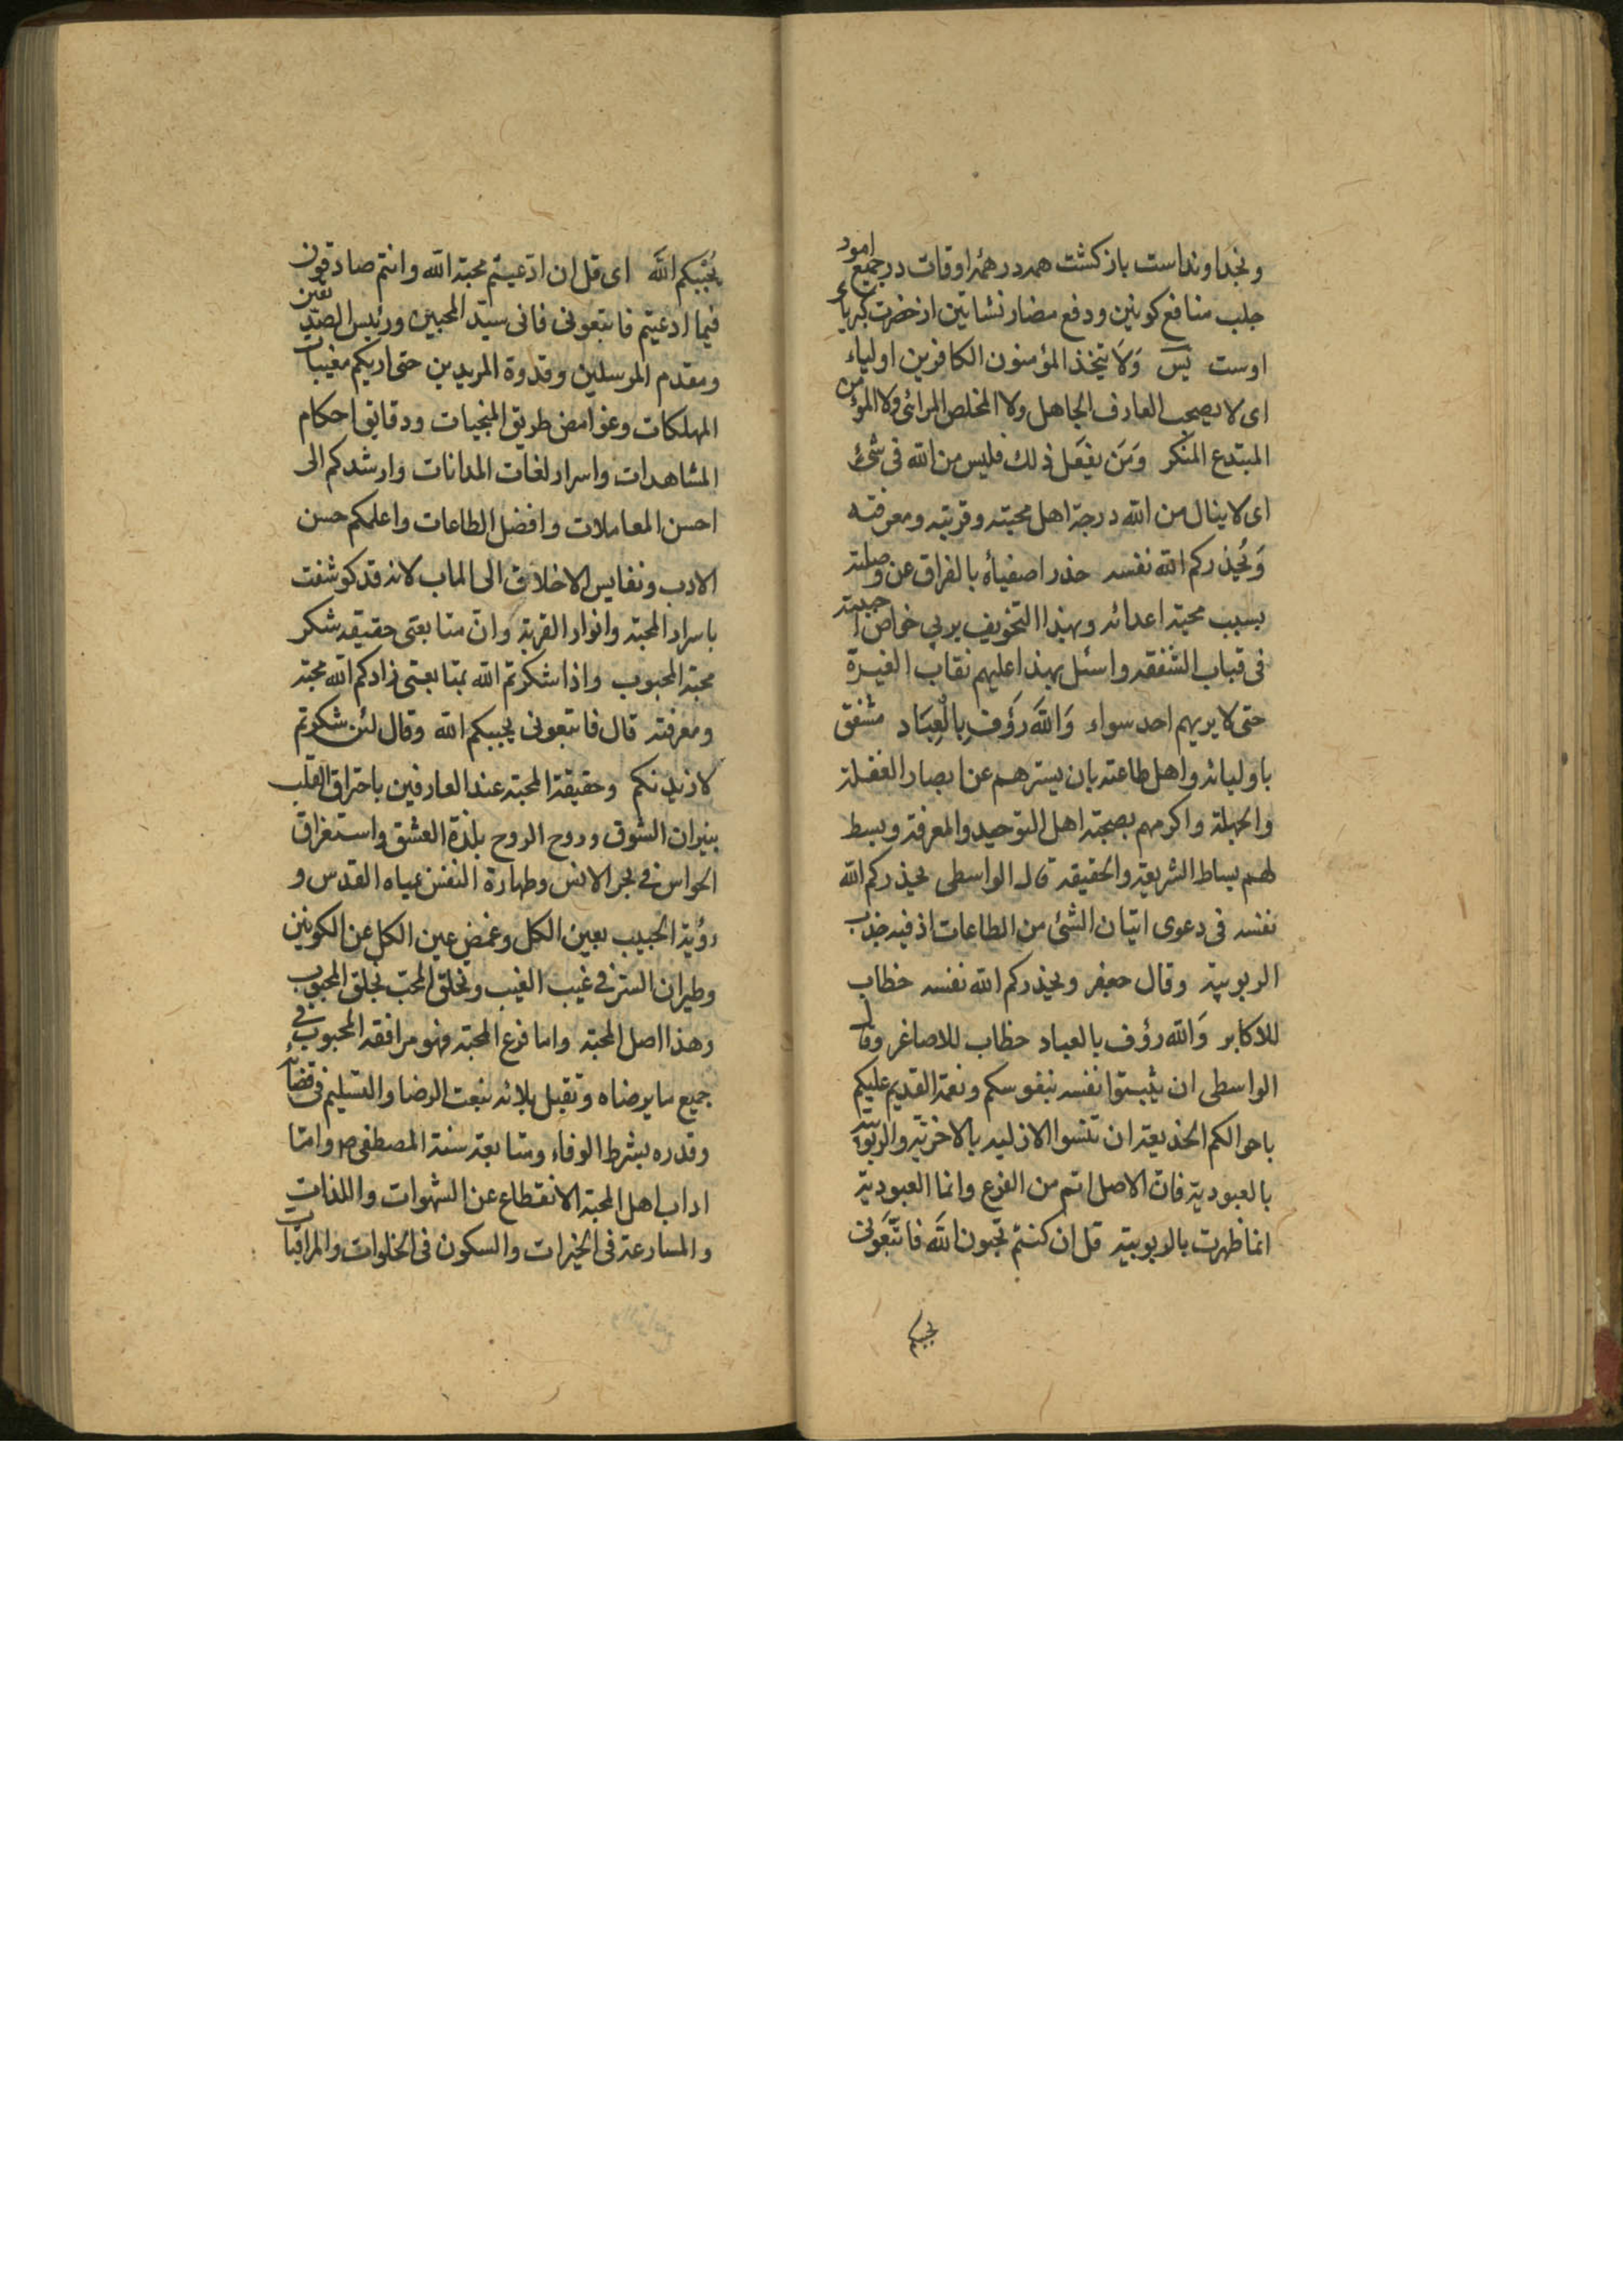 وبخداونداست بازكشت همه در همۀ اوقات در جميع امور
جلب منافع كونين ودفع مضار نشاتين از حضرت كبرياء
اوست يس وَلَا يتخذ المؤمنون الكافرين اولياء
اى لا يصحب العارف الجاهل ولا المخلص المرائى ولا المؤمن
المبتدع المنكر وَمَن يفعَل ذلك فليس من الله فى شئ
اى لا ينال من الله درجة اهل محبته وقربته ومعرفته
وَيُحذركم الله نفسه حذر اصفيأه بالفراق عن وصلته
بسبب محبة اعدائه وبهذا التخويف يربي خواص احبته
فى قباب الشفقه واسئل بهذا عليهم نقاب الغيرة
حتى لا يريهم احد سواء وَاللهَ رَؤف بالعِبَاد مشفق
باوليائه واهل طاعته بان يسترهم عن ابصار الغفلة
والجهلة واكرمهم بصحبته اهل التوحيد والمعرفة وبسط
لهم بساط الشريعة والحقيقة قال الواسطى يحذركم الله
نفسه فى دعوى اتيان الشئ من الطاعات اذ فيه جذب
الربوبية وقال جعفر ويحذركم الله نفسه خطاب
للاكابر وَالله رؤف بالعباد خطاب للاصاغر وقال
الواسطى ان يثبتوا نفسه بنفوسكم ونعمة القديم عليكم
باحوالكم الخديعة ان تنسوا الازليه بالاخرتيه والربوبيّة
بالعبودية فانّ الاصل اتم من الفرع وانما العبودية
انما ظهرت بالربوبية قل ان كنتم تحبون الله فاتّبعَونى
يحببكم
يُحْبِبكم اللهَ اى قل ان ادّعيتم محبة الله وانتم صادقون
فيما ادعيتم فاتبعونى فانى سيّد المحبين ورئيس الصدّيقين
ومقدم المرسلين وقدوة المريدين حتى اريكم مغيبات
المهلكات وغوامض طريق المنجيات ودقايق احكام
المشاهدات واسرار لغات المدانات وارشدكم الى
احسن المعاملات وافضل الطاعات واعلمكم حسن
الادب ونفايس الاخلاق الى الماب لانه قد كوشفت
باسرار المحبة وانوار القربة وَانّ متابعتى حقيقه شكر
محبة المحبوب واذا شكرتم الله بمتابعتى زادكم الله محبة
ومعرفته قال فاتبعونى يحببكم الله وقال لئن شكرتم
لازيدنكم وحقيقة المحبة عند العارفين باحتراق القلب
بنيران الشوق وروح الروح بلذة العشق واستغراق
الحواس فى بحر الانس وطهارة النفس بمياه القدس و
رؤية الحبيب بعين الكل وغمض عين الكل عن الكونين
وطيران السرّ فى غيب الغيب وتخلق المحبّ بخلق المحبوب
وهذا اصل المحبة واما فرع المحبة فهو مرافقه المحبوب فى
جميع ما يرضاه وتقبل بلائه بنعت الرضا والتسليم فى قضائه
وقدره بشرط الوفاء ومتابعة سنة المصطفى ص وامّا
اداب اهل المحبة الانقطاع عن الشهوات واللذات
والمسارعة فى الخيرات والسكون فى الخلوات والمراقبات